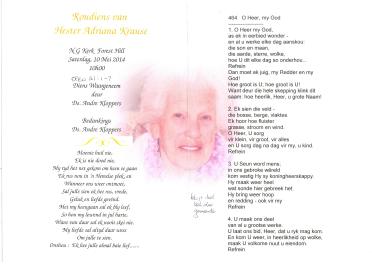 Roudiens van
Hester Adriana Krause
N G Kerk Forest Hill
Saterdag, 10 Mei 2014
10h00
Diens Waargeneem
deur
Ds. Andre Kloppers
Bedankings
Ds. Andre Kloppers
Moenie huil nie,
Ek is nie dood nie,
My tyd het net gekom om heen te gaan
Ek rus nou in 'n Hemelse plek, en
Wanneer ons weer ontmoet,
Sal julle sien ek het rus, vrede,
Geluk en liefde gevind.
Met my heengaan sal ek bly leef,
So hou my lewend in jul harte.
Want van daar sal ek nooit skei nie.
My liefde sal altyd daar wees
Om julle te sien.
Onthou : Ek het julle almal baie lief......
464 O Heer, my God
1. O Heer my God,
as ek in eerbied wonder -
en al u werke elke dag aanskou:
die son en maan,
die aarde, sterre, wolke,
hoe U dit elke dag so onderhou...
Refrein
Dan moet ek juig, my Redder en my
God!
Hoe groot is U; hoe groot is U!
Want deur die hele skepping klink dit
saam: hoe heerlik, Heer, u grote Naam!
2. Ek sien die veld -
die bosse, berge, vlaktes
Ek hoor hoe fluister
grasse, stroom en wind.
O Heer, U sorg
vir klein, vir groot, vir alles
en U sorg dag na dag vir my, u kind.
Refrein
3. U Seun word mens;
in ons gebroke wêreld
kom vestig Hy sy koningsheerskappy.
Hy maak weer heel
wat sonde hier gebreek het.
Hy bring weer hoop
en redding - ook vir my
Refrein
4. U maak ons deel
van al u grootse werke.
U laat ons bid, Heer, dat u ryk mag kom.
En kom U weer, in heerlikheid op wolke,
maak U volkome nuut u eiendom.
Refrein